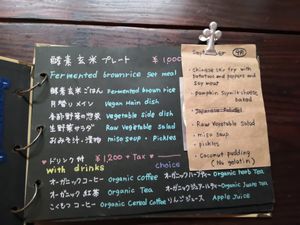 酵素玄米プレート ¥1,000
Fermented brownrice set meal
酵素玄米ごはん Fermented brown rice
月替りメイン Vegan Main dish
季節野菜の惣菜 Vegetable side dish
生野菜サラダ Raw Vegetable Salad
おみそ汁・漬物 miso soup・Pickles
ドリンク付 ¥1,200 + Tax
with drinks choice
オーガニックコーヒー Organic coffee
オーガニックハーブティー Organic herb Tea
オーガニック紅茶 Organic Tea
Organic Tea
こくもつコーヒー Organic Cereal Coffee
りんごジュース Apple Juice
September
• Chinese stir fry with
potatoes and peppers and
soy meat
• pumpkin
baked
• Raw Vegetable Salad
• miso soup
• pickles
• Coconut pudding
(No gelatin)